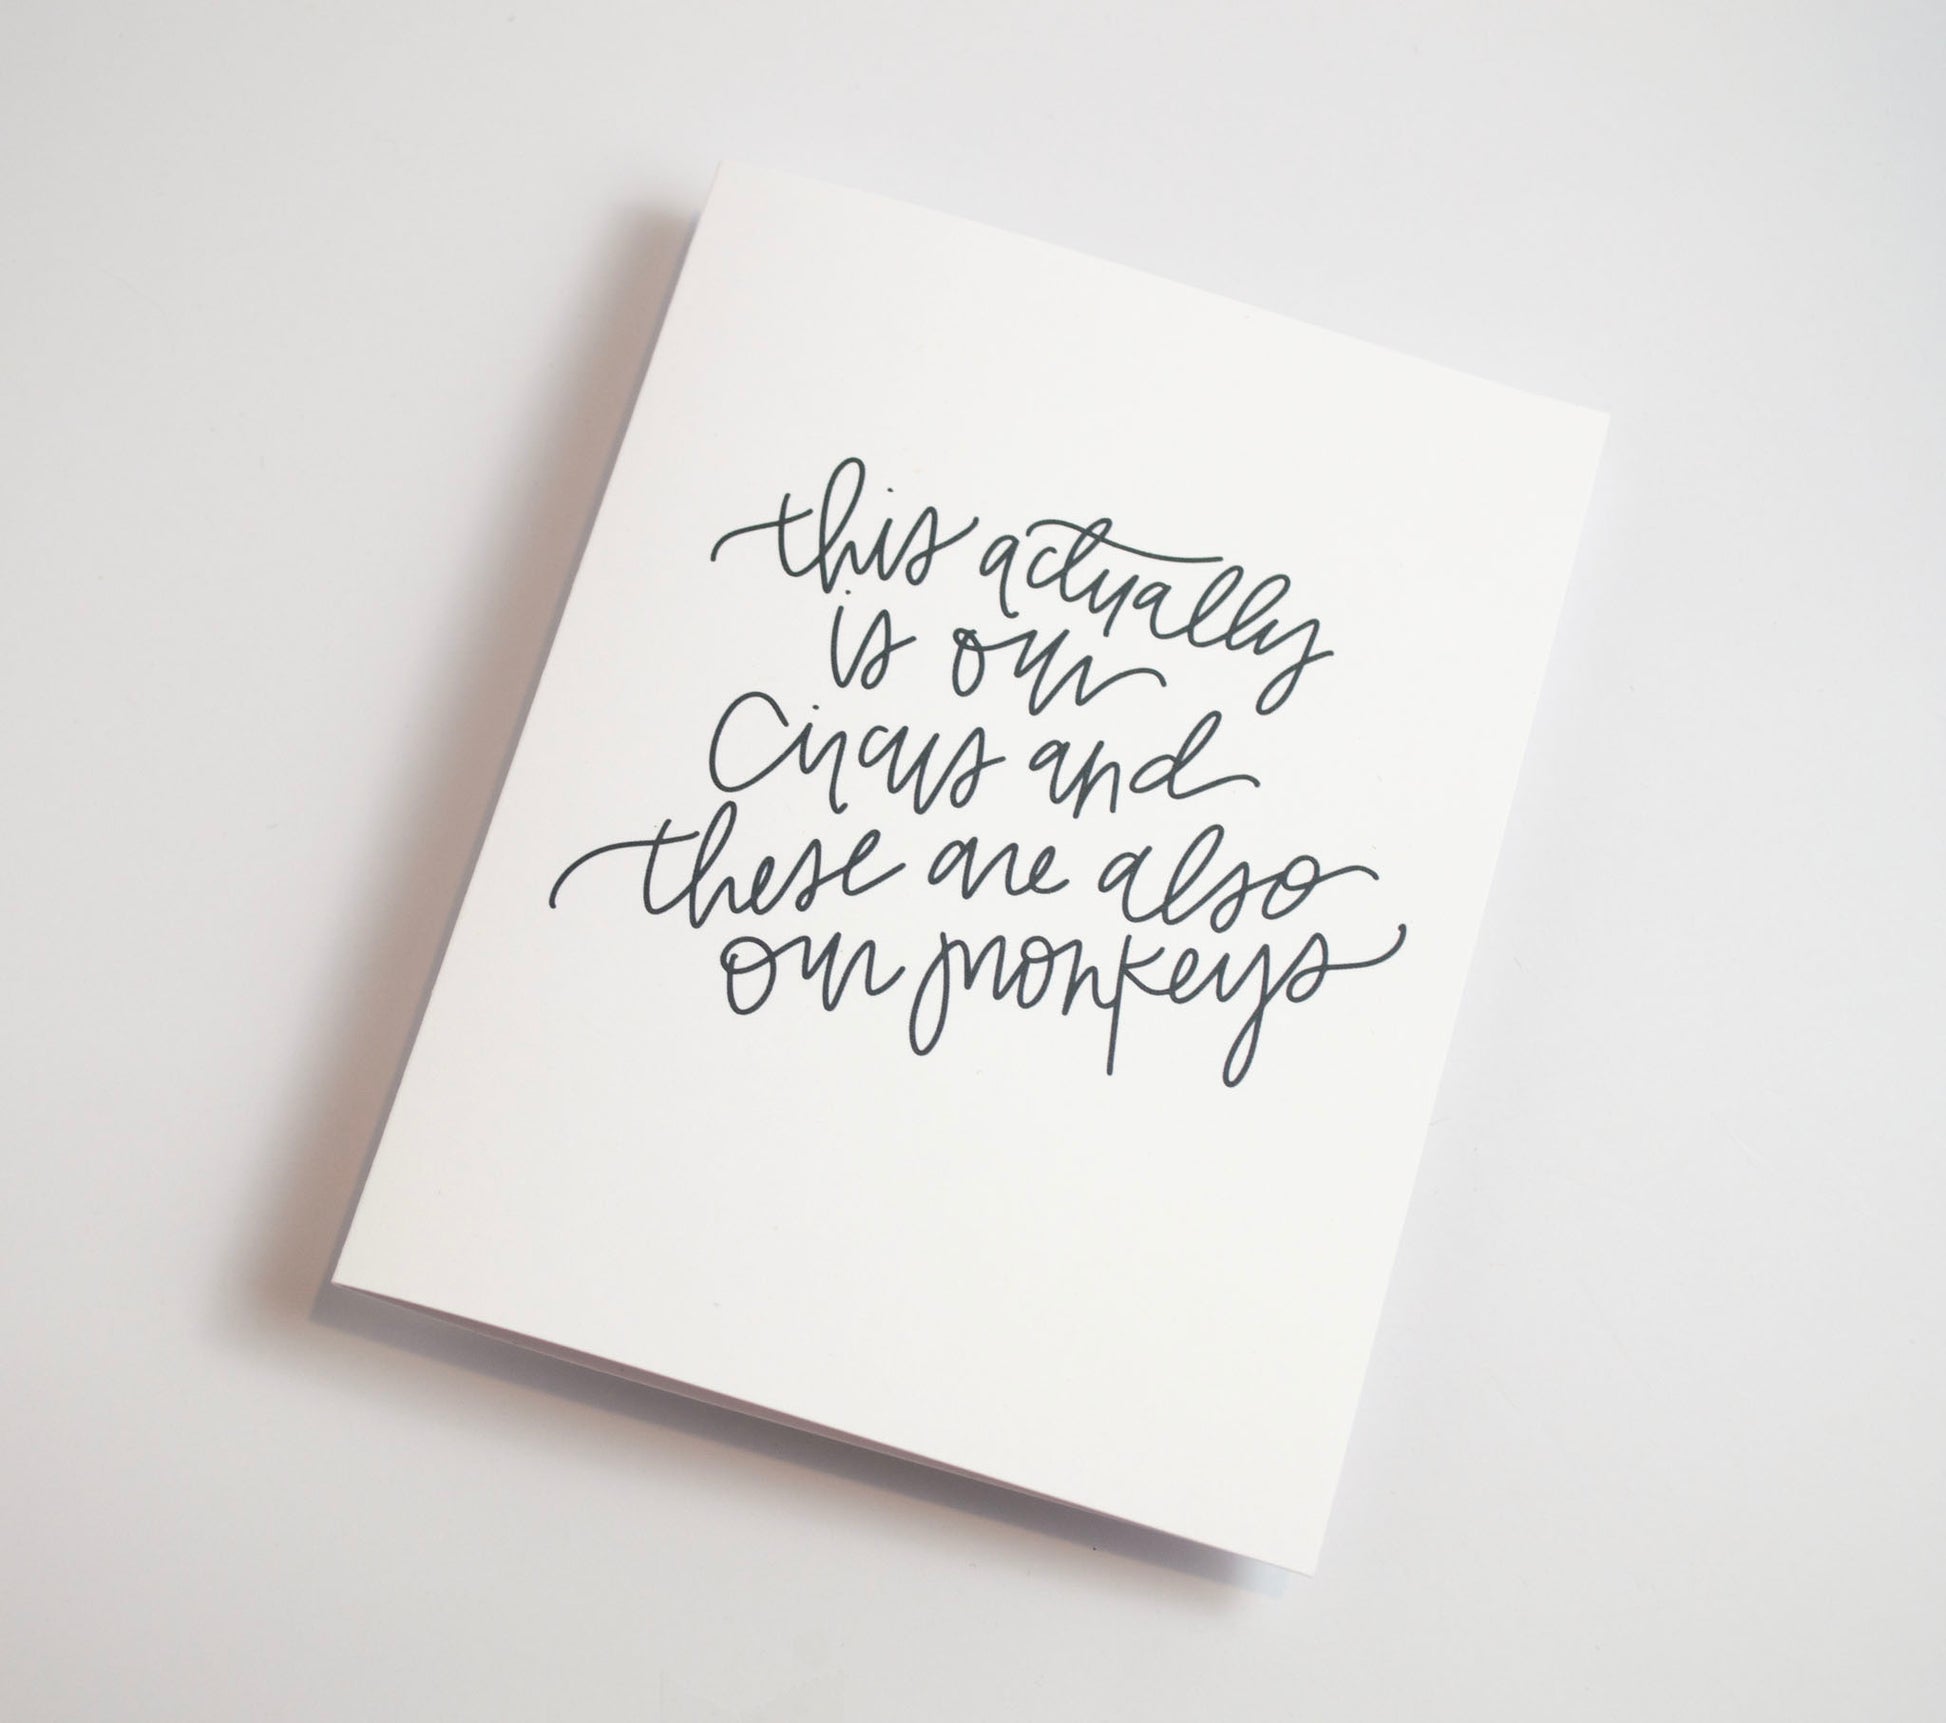 this actually
is our
Circus and
these are also
our monkeys